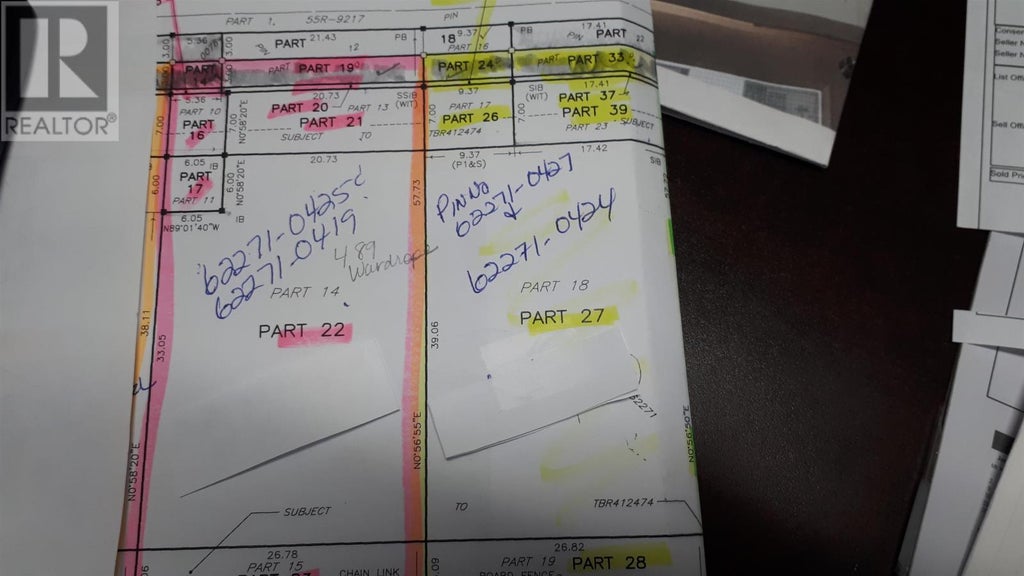 PART 1, 55R-9217
PIN
5.36
21.43
PART
12
PIN
PB
18
9.37
PART 16
17.41
PB
PIN
PART
22
3.00
3.00
PART
PART 19
PART 24
PART 33
5.36
20.73
SSIB
(WIT)
9.37
17.41
PART 10
PART
16
7.00
7.00
N0°58'20"E
PART 20
PART 13
PART 21
SUBJECT TO
7.00
PART 17
PART 26
TBR412474
7.00
(WIT)
PART 37
PART 39
PART 23
SUBJECT
6.05
IB
20.73
9.37
(P1&S)
17.42
SIB
PART
17
PART 11
6.00
6.00
N0°58'20"E
6.05
IB
N89°01'40"W
57.73
62271-0425
62271-0419
489
Wardrope
PIN No
62271-0427
&
62271-0424
PART 14
PART 22
PART 18
PART 27
38.11
33.05
39.06
62271
N0°58'20"E
N0°56'55"E
N0°56'50"E
SUBJECT
TO
TBR412474
26.78
PART 15
CHAIN LINK
26.82
PART 19
PART 28
BOARD FENCE
.06
.09
List Off
Sell Off
Sold Pri
R
REALTOR®